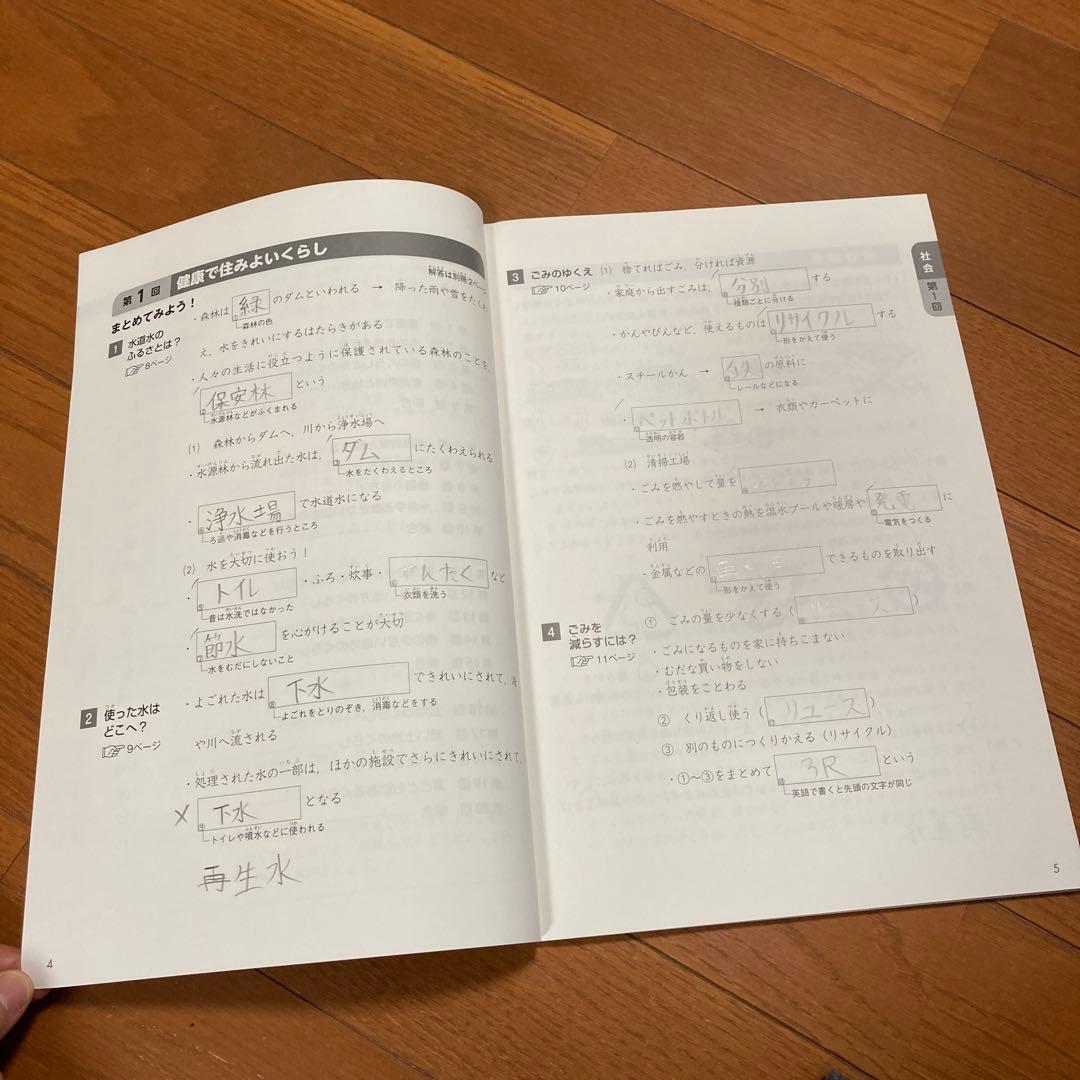 第1回 健康で住みよいくらし
解答は別冊2ページ
まとめてみよう!
1 水道水のふるさとは?
8ページ
・森林は 緑 のダムといわれる → 降った雨や雪をたくわ
森林の色
え，水をきれいにするはたらきがある
・人々の生活に役立つように保護されている森林のことを，
保安林 という
水源林などがふくまれる
(1) 森林からダムへ，川から浄水場へ
・水源林から流れ出た水は， ダム にたくわえられる
水をたくわえるところ
・ 浄水場 で水道水になる
ろ過や消毒などを行うところ
(2) 水を大切に使おう！
・ トイレ ・ふろ・炊事・ せんたく など
昔は水洗ではなかった 衣類を洗う
・ 節水 を心がけることが大切
水をむだにしないこと
2 使った水はどこへ?
9ページ
・よごれた水は 下水 できれいにされて，
よごれをとりのぞき，消毒などをする
や川へ流される
・処理された水の一部は，ほかの施設でさらにきれいにされて，
× 下水 となる
トイレや噴水などに使われる
再生水
4
社会 第1回
3 ごみのゆくえ
10ページ
(1) 捨てればごみ，分ければ資源
・家庭から出すごみは， 分別 する
種類ごとに分ける
・かんやびんなど，使えるものは リサイクル する
形をかえて使う
・スチールかん → の原料に
レールなどになる
・ ペットボトル → 衣類やカーペットに
透明の容器
(2) 清掃工場
・ごみを燃やして量を
・ごみを燃やすときの熱を温水プールや暖房や 発電 に
電気をつくる
利用
・金属などの できるものを取り出す
形をかえて使う
4 ごみを減らすには?
11ページ
① ごみの量を少なくする（ ）
・ごみになるものを家に持ちこまない
・むだな買い物をしない
・包装をことわる
② くり返し使う（ リユース ）
③ 別のものにつくりかえる（リサイクル）
・①～③をまとめて 3R という
英語で書くと先頭の文字が同じ
5